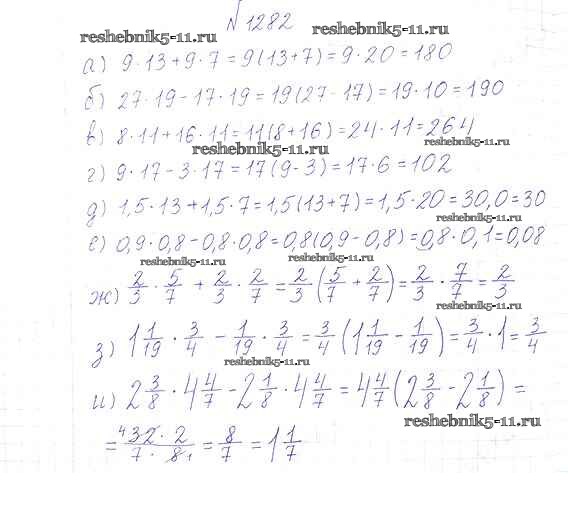 № 1282
reshebnik5-11.ru reshebnik5-11.ru
а) 9·13+9·7=9(13+7)=9·20=180
б) 27·19−17·19=19(27−17)=19·10=190
в) 8·11+16·11=11(8+16)=24·11=264
reshebnik5-11.ru reshebnik5-11.ru
г) 9·17−3·17=17(9-3)=17·6=102
д) 1,5·13+1,5·7=1,5(13+7)=1,5·20=30,0=30
reshebnik5-11.ru
е) 0,9·0,8−0,8·0,8=0,8(0,9−0,8)=0,8·0,1=0,08
reshebnik5-11.ru reshebnik5-11.ru
ж) 2/3 · 5/7 + 2/3 · 2/7 = 2/3 (5/7 + 2/7) = 2/3 · 7/7 = 2/3
reshebnik5-11.ru
з) 1 1/19 · 3/4 − 1/19 · 3/4 = 3/4 (1 1/19 − 1/19) = 3/4 · 1 = 3/4
reshebnik5-11.ru
и) 2 3/8 · 4 4/7 − 2 1/8 · 4 4/7 = 4 4/7 (2 3/8 − 2 1/8) =
reshebnik5-11.ru
= 4 32 · 2 / 7 · 8 1 = 8/7 = 1 1/7